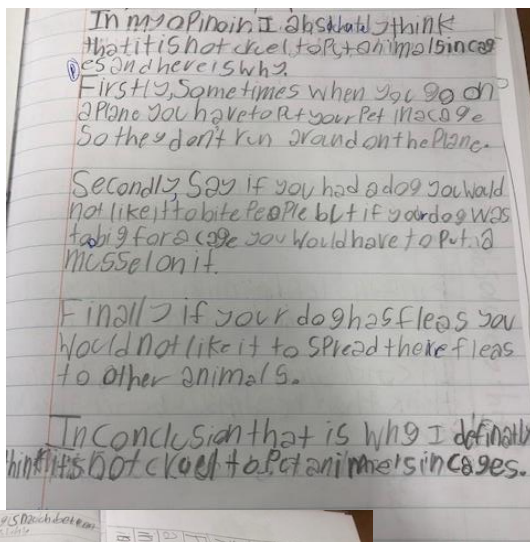 In my oPinoin I absalutely think
that it is not cruel to Put animals in cag
es and here is why.
Firstly, Sometimes when you go on
a Plane you have to Put your Pet in a cage
So they don't run around on the Plane.
Secondly, Say if you had a dog you would
not like it to bite PeoPle but if your dog was
to big for a cage you would have to Put a
mussel on it.
Finally if your dog has fleas you
would not like it to SPread there fleas
to other animals.
In Conclusion that is why I definatly
think it's not cruel to Put animels in cages.